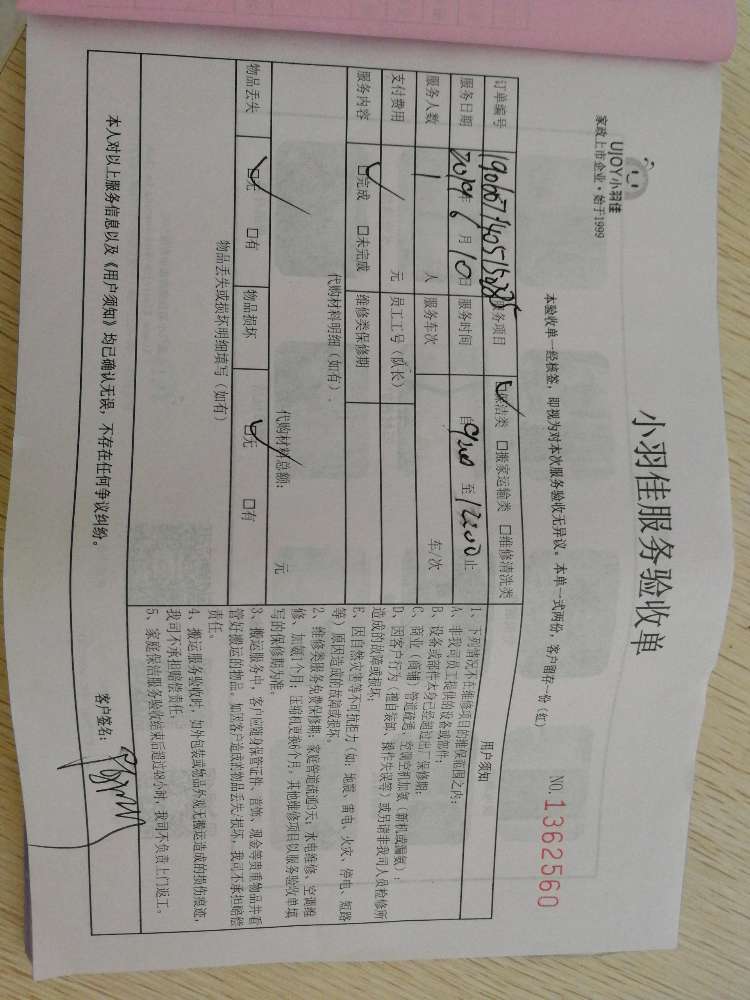 UJOY小羽佳
家政上市企业·始于1999
小羽佳服务验收单
本验收单一经核签，即视为对本次服务验收无异议。本单一式两份，客户留存一份（红）
NO.1362560
订单编号 服务项目 保洁类 □搬家运输类 □维修清洗类
服务日期 2019年6月10日 服务时间 自9:00至12:00止
服务人数 1人 服务车次 车/次
支付费用 元 员工工号（队长）
服务内容 □完成 □未完成 维修类保修期
代购材料明细（如有）
代购材料总额： 元
物品丢失 □无 □有 物品损坏 □无 □有
物品丢失或损坏明细填写（如有）
用户须知
1、下列情况不在维修项目的维保范围之内：
A、非我司员工提供的设备或部件；
B、设备或部件本身已经超过出厂保修期；
C、商业（商铺）管道疏通、空调空机加氨（新机或漏氨）；
D、因客户行为（擅自装卸、操作失误等）或另请非我司人员检修所
造成的故障或损坏；
E、因自然灾害等不可抗拒力（如：地震、雷电、火灾、停电、短路
等）原因造成的故障或损坏。
2、维修类服务免费保修期：家庭管道疏通3天；水电维修、空调维
修、加氨1个月；压缩机更换6个月，其他维修项目以服务验收单填
写的保修期为准。
3、搬运服务中，客户应随身保管证件、首饰、现金等贵重物品并看
管好搬运的物品。如因客户造成的物品丢失/损坏，我司不承担赔偿
责任。
4、搬运服务验收时，如外包装或物品外观无搬运造成的损伤痕迹，
我司不承担赔偿责任。
5、家庭保洁服务验收结束后超过48小时，我司不负责上门返工。
本人对以上服务信息以及《用户须知》均已确认无误，不存在任何争议纠纷。
客户签名：